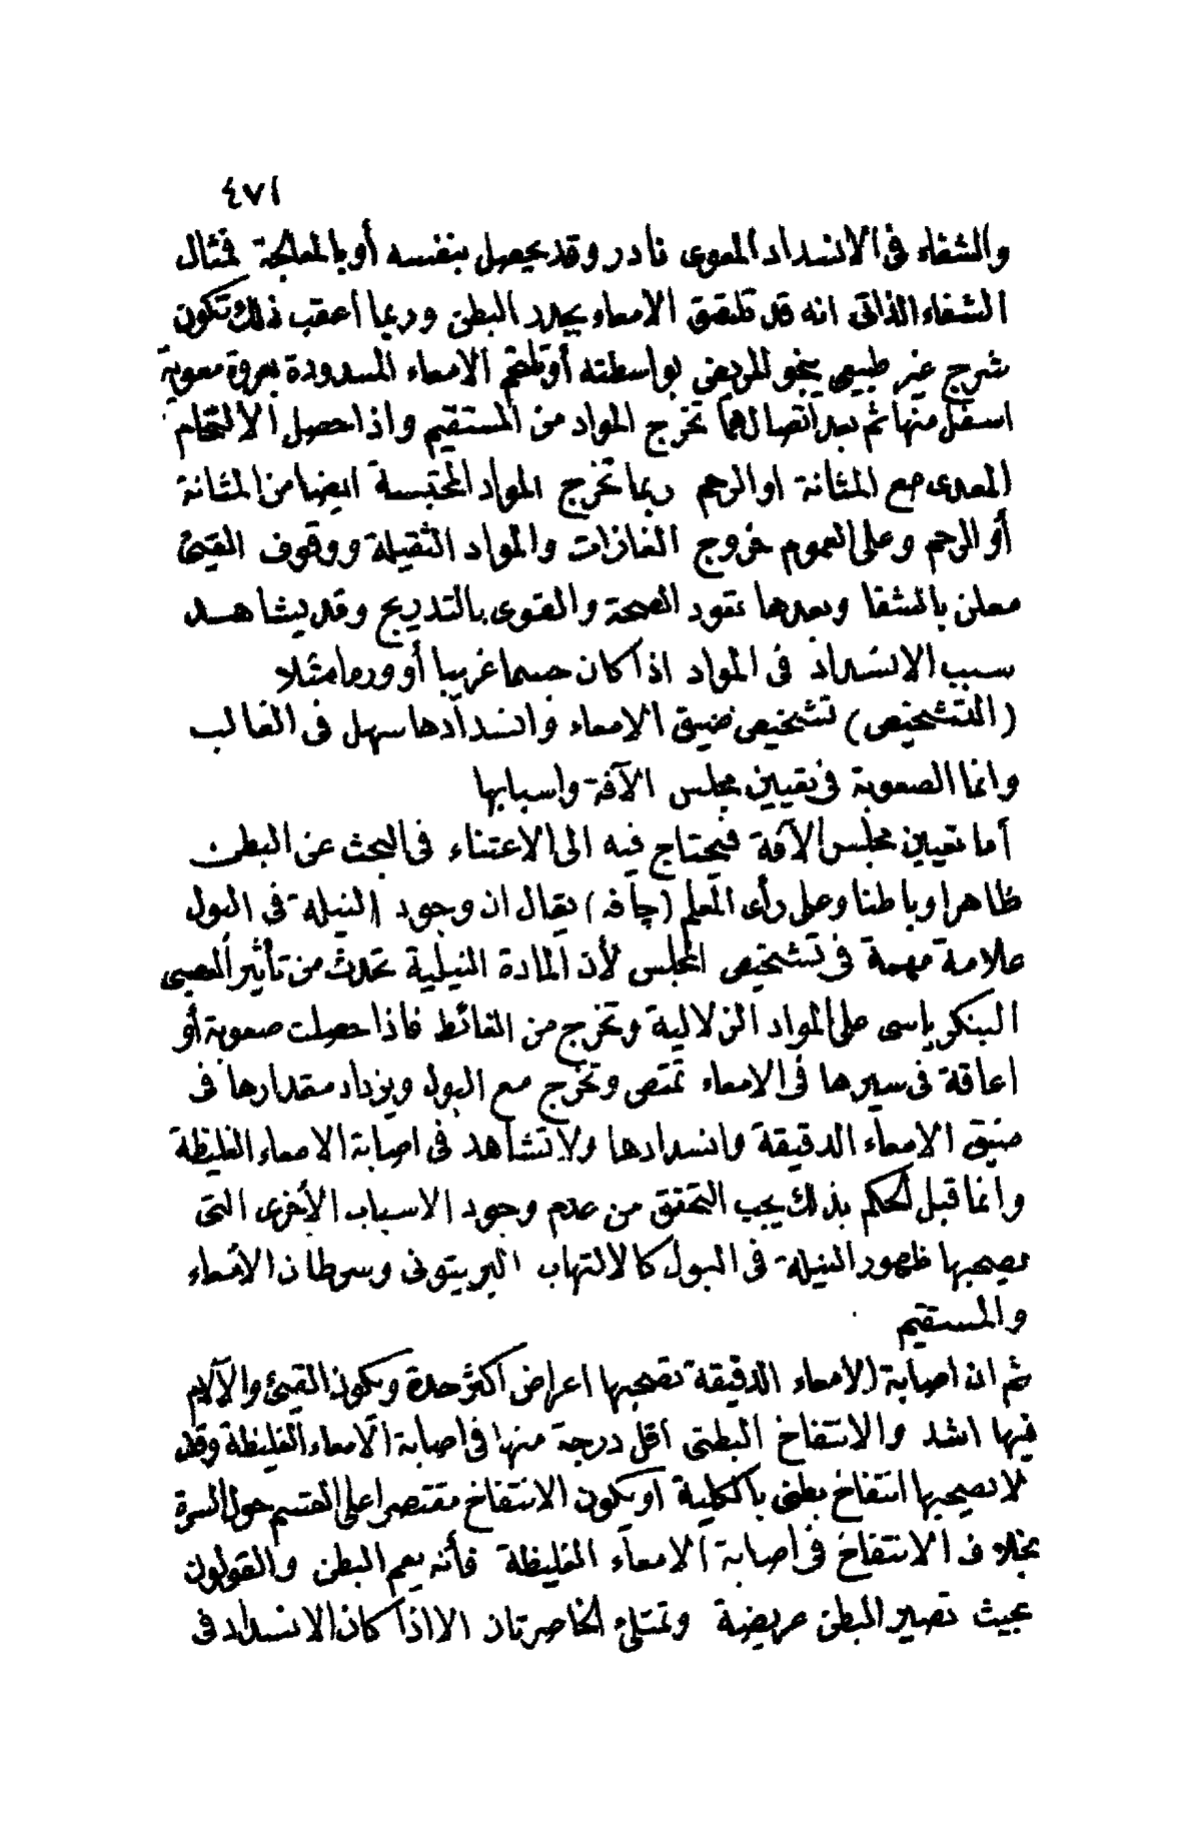 ٤٧١
والشفاء فى الانسداد المعوى نادر وقد يحصل بنفسه أو بالمعالجة فمثال
الشفاء الذاتى انه قد تلتصق الامعاء بجدر البطن وربما اعقب ذلك تكون
شرج غير طبيعى ينجو المريض بواسطته أو تلتحم الامعاء المسدودة بعروة معوية
اسفل منها ثم بعد اتصالهما تخرج المواد من المستقيم واذا حصل الالتحام
المعدى مع المثانة او الرحم ربما تخرج المواد المحتبسة ايضا من المثانة
أو الرحم وعلى العموم خروج الغازات والمواد الثقيلة ووقوف القيئ
معلن بالشفا وبعدها تعود الصحة والقوى بالتدريج وقد يشاهد
سبب الانسداد فى المواد اذا كان جسما غريبا أو ورما مثلا
(التشخيص) تشخيص ضيق الامعاء وانسدادها سهل فى الغالب
وانما الصعوبة فى تعيين مجلس الآفة واسبابها
أما تعيين مجلس الآفة فيحتاج فيه الى الاعتناء فى البحث عن البطن
ظاهرا وباطنا وعلى رأى المعلم (چافه) يقال ان وجود النيلة فى البول
علامة مهمة فى تشخيص المجلس لأن المادة النيلية تحدث من تأثير العصير
البنكرياسى على المواد الزلالية وتخرج من الغائط فاذا حصلت صعوبة أو
اعاقة فى سيرها فى الامعاء تمتص وتخرج مع البول ويزداد مقدارها فى
ضيق الامعاء الدقيقة وانسدادها ولا تشاهد فى اصابة الامعاء الغليظة
وانما قبل الحكم بذلك يجب التحقق من عدم وجود الاسباب الأخرى التى
يصحبها ظهور النيلة فى البول كالالتهاب البريتونى وسرطان الامعاء
والمستقيم
ثم ان اصابة الامعاء الدقيقة تصحبها اعراض أكثر حدة ويكون القيئ والآلام
فيها اشد والانتفاخ البطنى اقل درجة منها فى اصابة الامعاء الغليظة وقد
لا يصحبها انتفاخ بطنى بالكلية او يكون الانتفاخ مقتصرا على القسم حول السرة
بخلاف الانتفاخ فى اصابة الامعاء الغليظة فأنه يعم البطن والقولون
بحيث تصير البطن عريضة وتمتلئ الخاصرتان الا اذا كان الانسداد فى